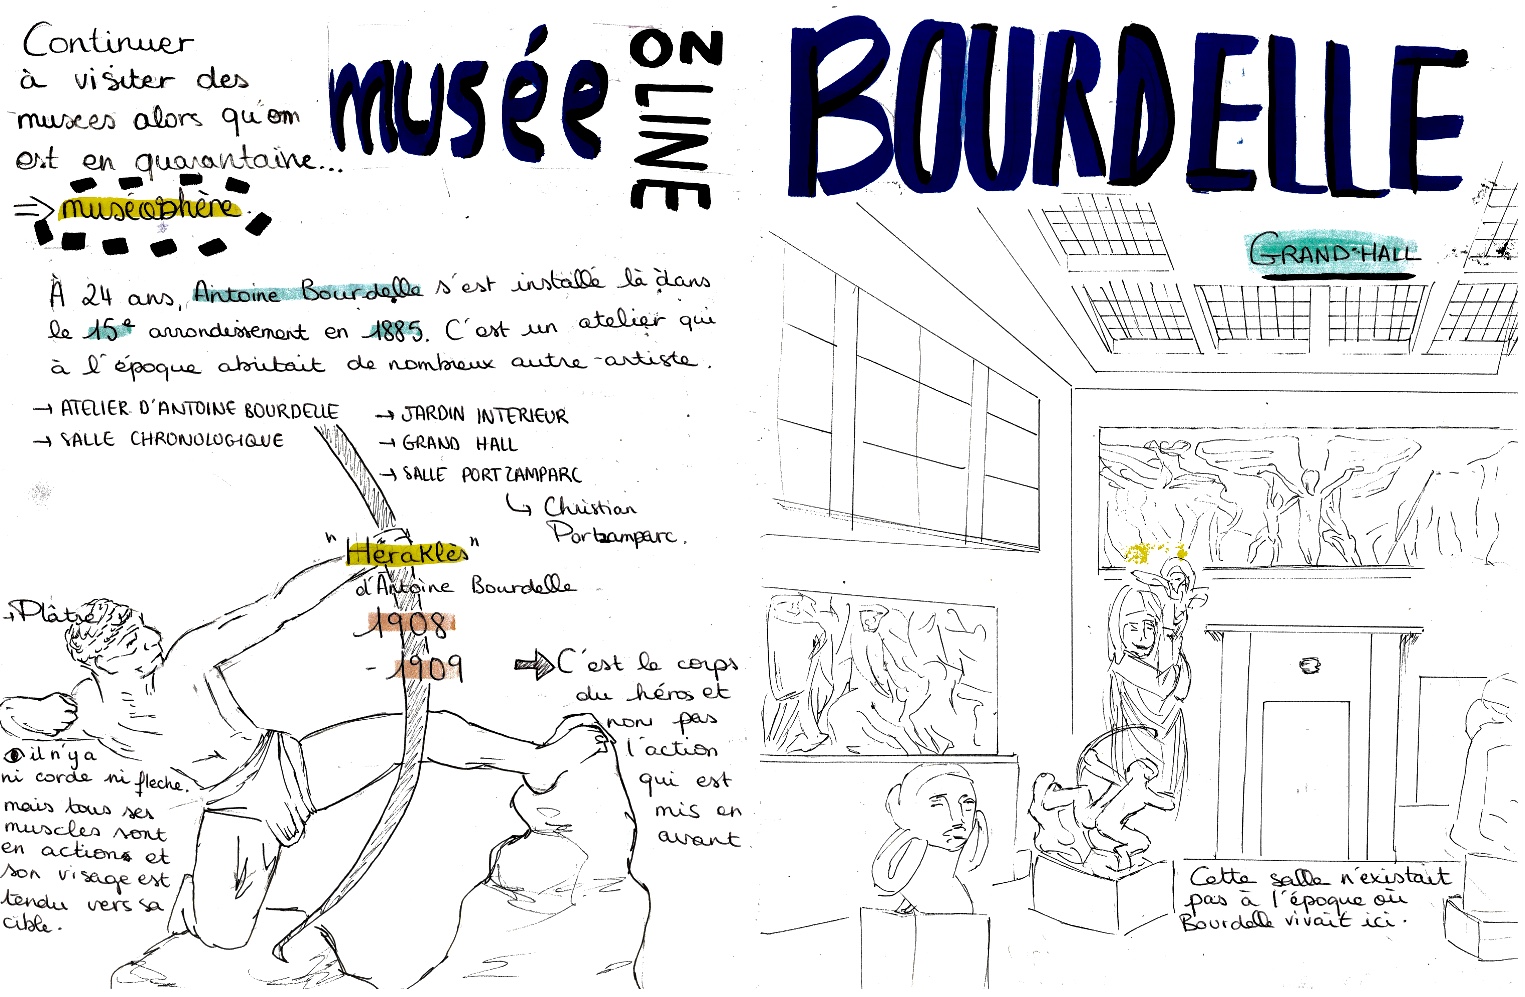 Continuer
à visiter des
musées alors qu'on
est en quarantaine...
⇒ muséosphère
musée
ON LINE
À 24 ans, Antoine Bourdelle s'est installé là dans
le 15e arrondissement en 1885. C'est un atelier qui
à l'époque abritait de nombreux autre-artiste.
→ ATELIER D'ANTOINE BOURDELLE
→ SALLE CHRONOLOGIQUE
→ JARDIN INTERIEUR
→ GRAND HALL
→ SALLE PORTZAMPARC
↳ Christian
Portzamparc.
"Héraklès"
d'Antoine Bourdelle
1908
- 1909
→ Plâtre
⇒ C'est le corps
du héros et
non pas
l'action
qui est
mis en
avant
il n'y a
ni corde ni fleche.
mais tous ses
muscles sont
en actions et
son visage est
tendu vers sa
cible.
BOURDELLE
GRAND-HALL
Cette salle n'existait
pas à l'époque où
Bourdelle vivait ici.